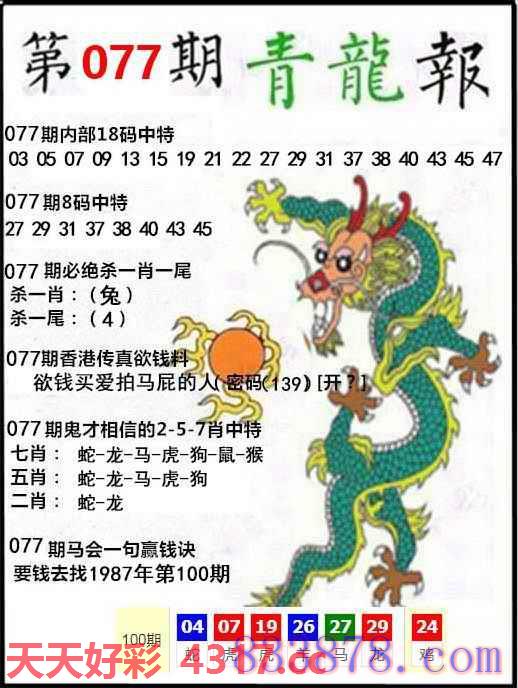 第077期 青龍報
077期内部18码中特
03 05 07 09 13 15 19 21 22 27 29 31 37 38 40 43 45 47
077期8码中特
27 29 31 37 38 40 43 45
077期必绝杀一肖一尾
杀一肖:(兔)
杀一尾:(4)
077期香港传真欲钱料
欲钱买爱拍马屁的人(密码(139)[开?]
077期鬼才相信的2-5-7肖中特
七肖: 蛇-龙-马-虎-狗-鼠-猴
五肖: 蛇-龙-马-虎-狗
二肖: 蛇-龙
077期马会一句赢钱诀
要钱去找1987年第100期
100期 04 07 19 26 27 29 24
蛇 虎 虎 羊 马 龙 鸡
天天好彩 4317.cc